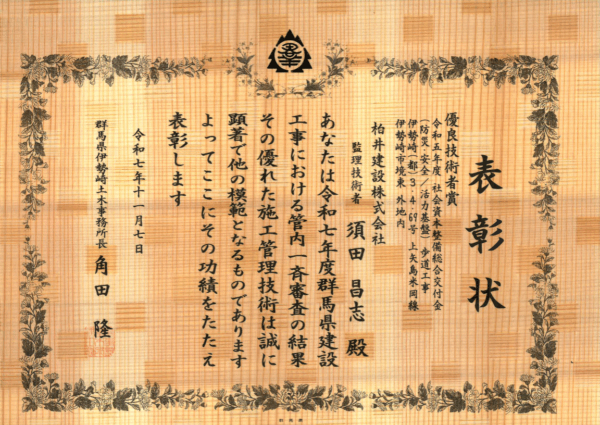 表彰状
優良技術者賞
令和五年度 社会資本整備総合交付金
(防災・安全/活力基盤) 歩道工事
伊勢崎(都)3・4・69号 上矢島米岡線
伊勢崎市境東 外地内
柏井建設株式会社
監理技術者 須田 昌志 殿
あなたは令和七年度群馬県建設
工事における管内一斉審査の結果
その優れた施工管理技術は誠に
顕著で他の模範となるものであります
よってここにその功績をたたえ
表彰します
令和七年十一月七日
群馬県伊勢崎土木事務所長 角田 隆